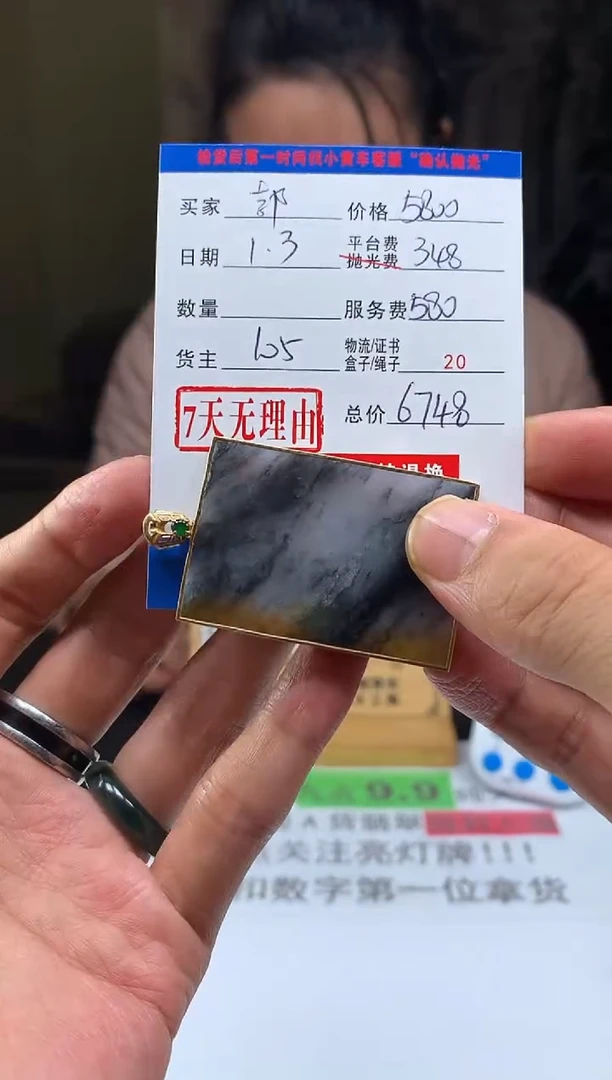 收货后第一时间找小黄车客服“确认抛光”
买家 郭 价格 5800
日期 1.3 平台费 抛光费 348
数量 服务费 580
货主 105 物流/证书 盒子/绳子 20
7天无理由 总价 6748
退换
9.9
A 货翡翠
关注亮灯牌!!!
扣数字第一位拿货